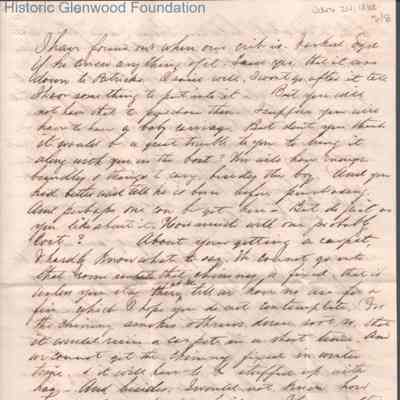 Historic Glenwood Foundation
I have found out when our crib is. I asked Syd
if he knew anything of it. Says yes, that it was
down to Patricks. Daniel will, I won't go after it till
I have something to put into it. But you will
not have that to purchase then. I suppose you will
have to have a baby carriage. But don't you think
it would be a great trouble to you to bring it
along with you in the boat? You will have enough
bundles & things to carry besides the boy. And you
had better wait till he is here before purchasing.
And perhaps one can be got here. But do just as
you like about it. How much will one probably
cost? About your getting a carpet,
I hardly know what to say. We cannot go into
that room until that chimney is fixed, that is
unless you stay there till we have no use for a
fire which I hope you do not contemplate. For
the chimney smokes & throws down soot so that
it would ruin a carpet in a short time. And
we cannot get the chimney fixed in winter
time, & it will have to be stuffed up with
hay. And besides, I would not know how